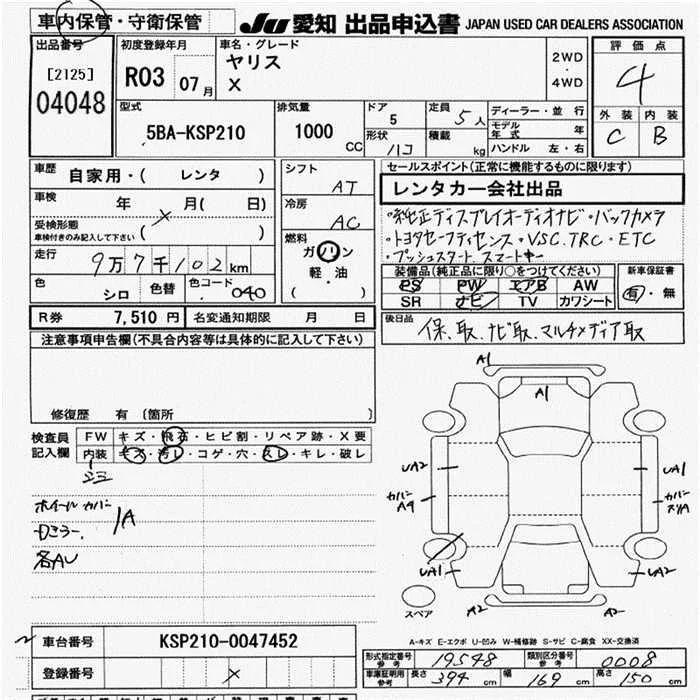 車内保管・守衛保管
JU 愛知 出品申込書 JAPAN USED CAR DEALERS ASSOCIATION
出品番号
[2125]
04048
初度登録年月
R03 07月
車名・グレード
ヤリス
X
2WD
・
4WD
評価点
4
外装 内装
C B
型式
5BA-KSP210
排気量
1000 CC
ドア
5
形状
ハコ
定員
5人
積載
kg
ディーラー・並行
モデル年式 年
ハンドル 左・右
車歴
自家用・( レンタ )
車検 年 月( 日)
受検形態
車検付きのみ記入して下さい ( )
走行
9万7千102km
色
シロ
色替
色コード
040
シフト
AT
冷房
AC
燃料
ガソリン
軽・油
( )
セールスポイント(正常に機能するものに限ります)
レンタカー会社出品
・純正ディスプレイオーディオナビ・バックカメラ
・トヨタセーフティセンス・VSC.TRC・ETC
・プッシュスタート スマートキー
装備品(純正品に限り○をつけてください)
PS PW エアB AW
SR ナビ TV カワシート
新車保証書
有・無
R券 7,510円 名変通知期限 月 日
後日品
保、取、ナビ取、マルチメディア取
注意事項申告欄(不具合内容等は具体的に記入して下さい)
修復歴 有 〔箇所 〕
検査員
記入欄
FW キズ・飛石・ヒビ割・リペア跡・X要
内装 キズ・汚レ・コゲ・穴・スレ・キレ・破レ
シミ
ホイールカバー
ロミラー
1A
各AU
A1
A1
UA2
カバー
A9
UA1
UA1
カバー
スリA
UA2
スペア
A2
A2
A-キズ E-エクボ U-凹み W-補修跡 S-サビ C-腐食 XX-交換済
車台番号 KSP210-0047452
登録番号
形式指定番号
参考
19548
類別区分番号
参考
0008
車庫証明用
参考
長さ 394 cm
幅 169 cm
高さ 150 cm